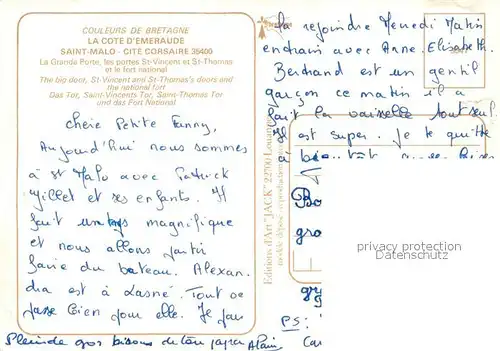 COULEURS DE BRETAGNE
LA COTE D'EMERAUDE
SAINT-MALO - CITE CORSAIRE 35400
La Grande Porte, les portes St-Vincent et St-Thomas
et le fort national
The big door, St-Vincent and St-Thomas's doors and
the national fort
Das Tor, Saint-Vincents Tor, Saint-Thomas Tor
und das Fort National
Cheie Petite Fanny,
Aujourd'hui nous sommes
à St Malo avec Patrick
et ses enfants. Il
fait un magnifique
et nous allons partir
faire du bateau. Alexan-
dra est à Lasné. Tout se
passe bien pour elle. Je pars
la rejoindre Mercredi Matin
en train avec Anne-Elisabeth.
Bertrand est un gentil
garçon ce matin il a
fait la vaisselle tout seul.
Il est super. Je te quitte
à bientôt
Bo
gro
PS:
Pleins de gros bisous de ton papa Alain
Editions d'Art "JACK" 22700 Louannec
privacy protection
Datenschutz